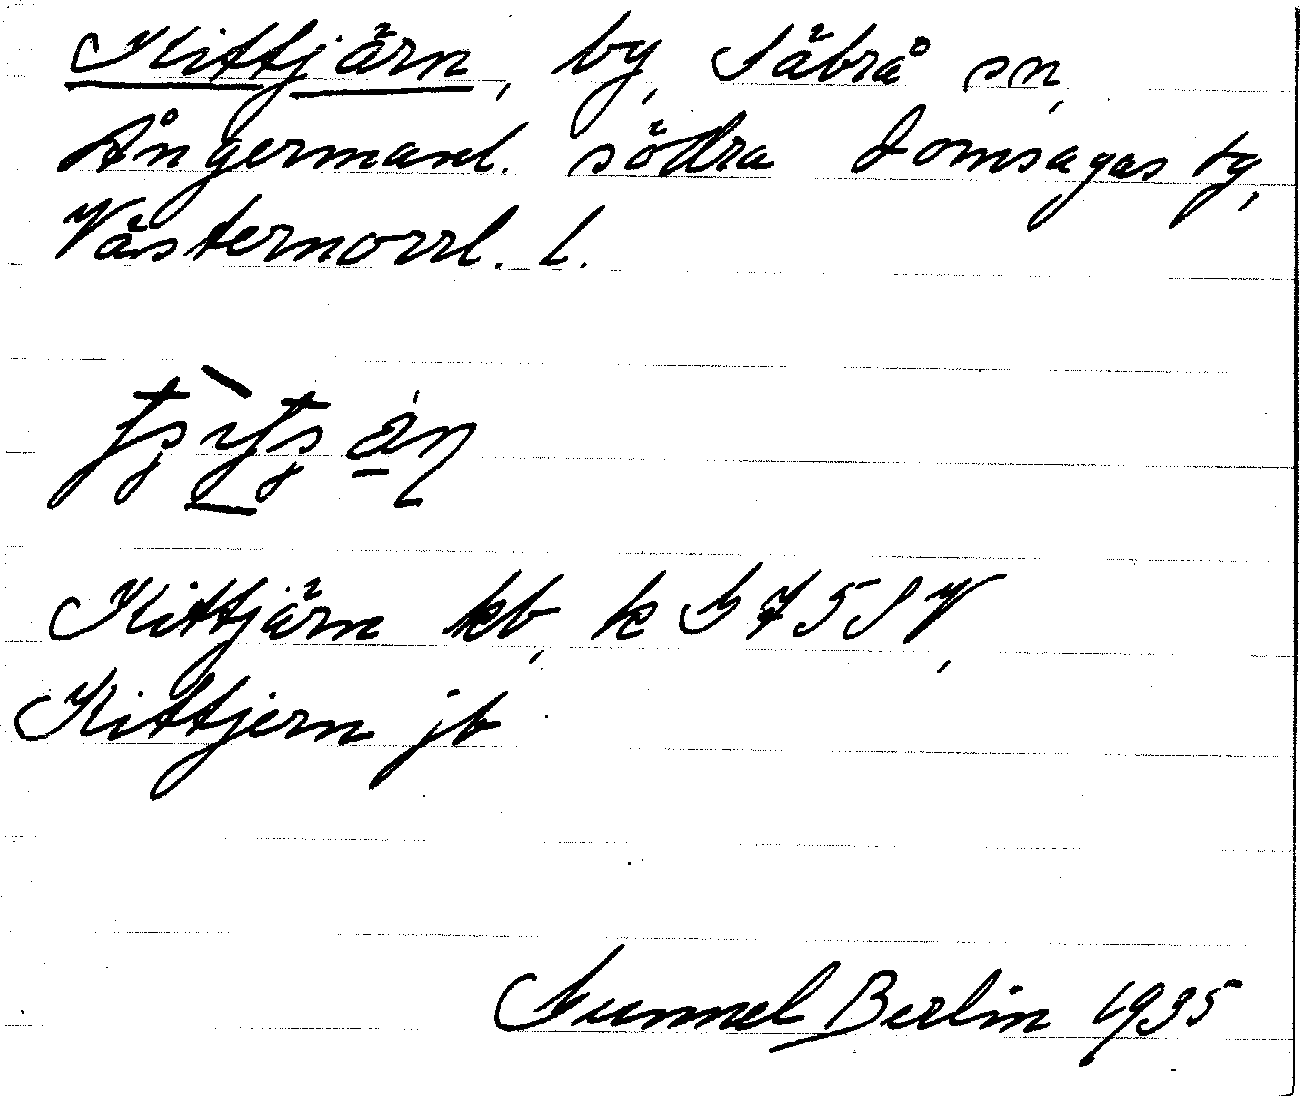 Kittjärn, by, Säbrå sn,
Ångermanl. södra domsagas tg,
Västernorrl. l.
Kittjärn kb, k G 7 5 S V,
Kittjern jb
Gunnel Berlin 1935